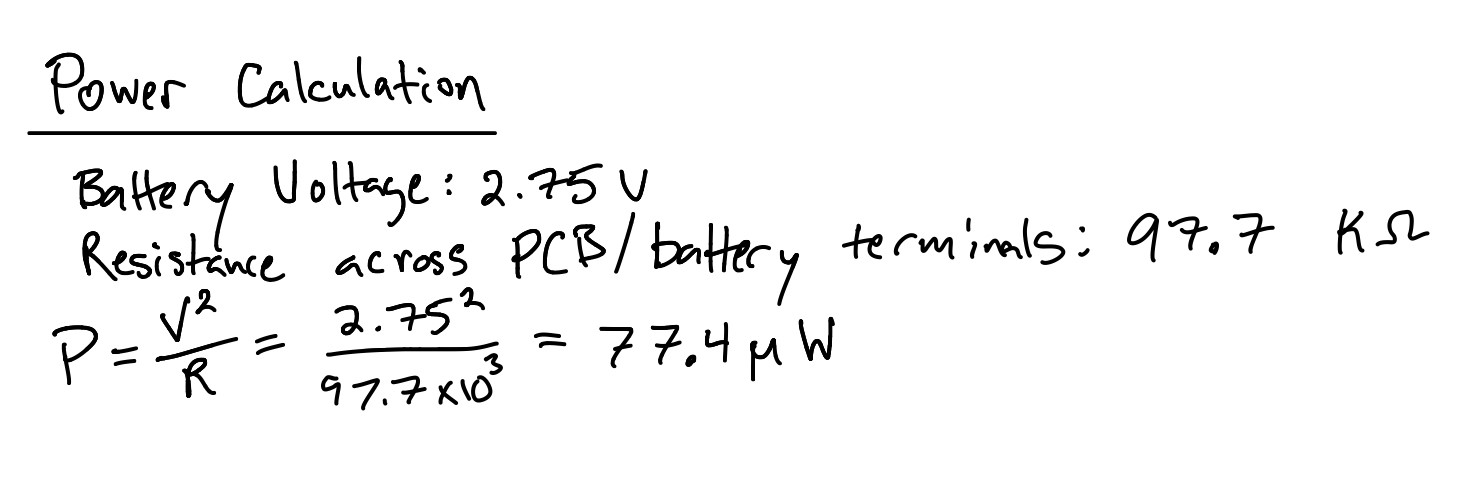 Power Calculation
Battery Voltage: 2.75 V
Resistance across PCB/battery terminals: 97.7 KΩ
P = V²/R = 2.75²/97.7×10³ = 77.4 μW